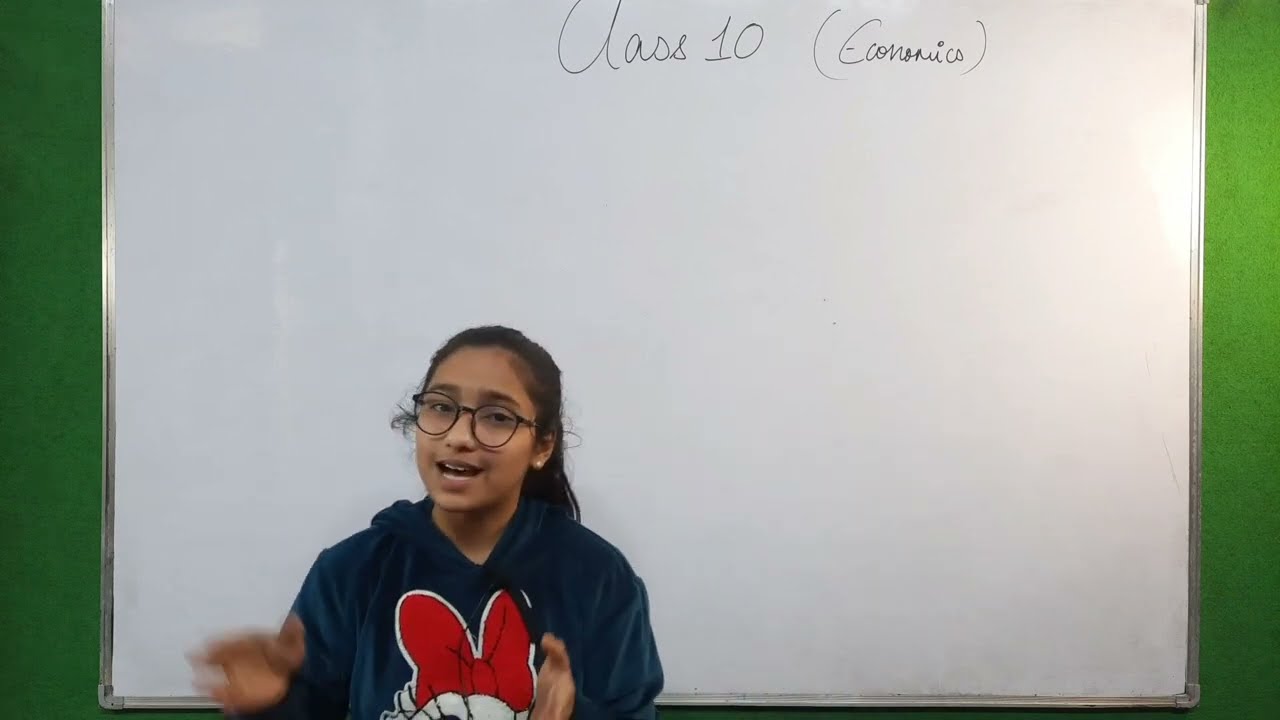 Class 10 (Economics)